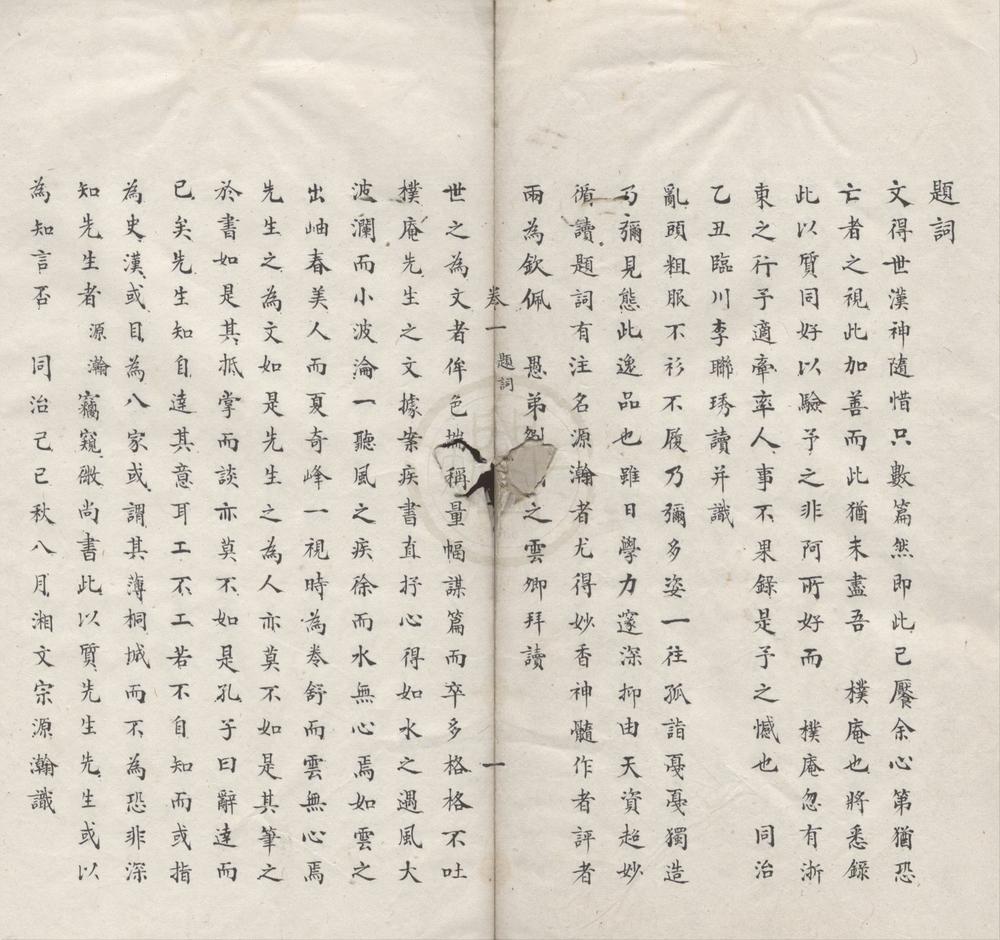 題詞
文得世漢神隨惜只數篇然即此已饜余心第猶恐
亡者之視此加善而此猶未盡吾　樸庵也將悉錄
此以質同好以驗予之非阿所好而　樸庵忽有浙
東之行予適牽率人事不果錄是予之憾也　同治
乙丑臨川李聯琇讀并識
亂頭粗服不衫不履乃彌多姿一往孤詣戞戞獨造
乃彌見態此逸品也雖日學力邃深抑由天資超妙
循讀題詞有注名源瀚者尤得妙香神髓作者評者
兩為欽佩　愚弟之雲卿拜讀
卷一　題詞　一
世之為文者侔色揣稱量幅謀篇而卒多格格不吐
樸庵先生之文據案疾書直抒心得如水之遇風大
波瀾而小波淪一聽風之疾徐而水無心焉如雲之
出岫春美人而夏奇峰一視時為卷舒而雲無心焉
先生之為文如是先生之為人亦莫不如是其筆之
於書如是其抵掌而談亦莫不如是孔子曰辭達而
已矣先生知自達其意耳工不工若不自知而或指
為史漢或目為八家或謂其薄桐城而不為恐非深
知先生者源瀚竊窺微尚書此以質先生先生或以
為知言否　同治己巳秋八月湘文宗源瀚識